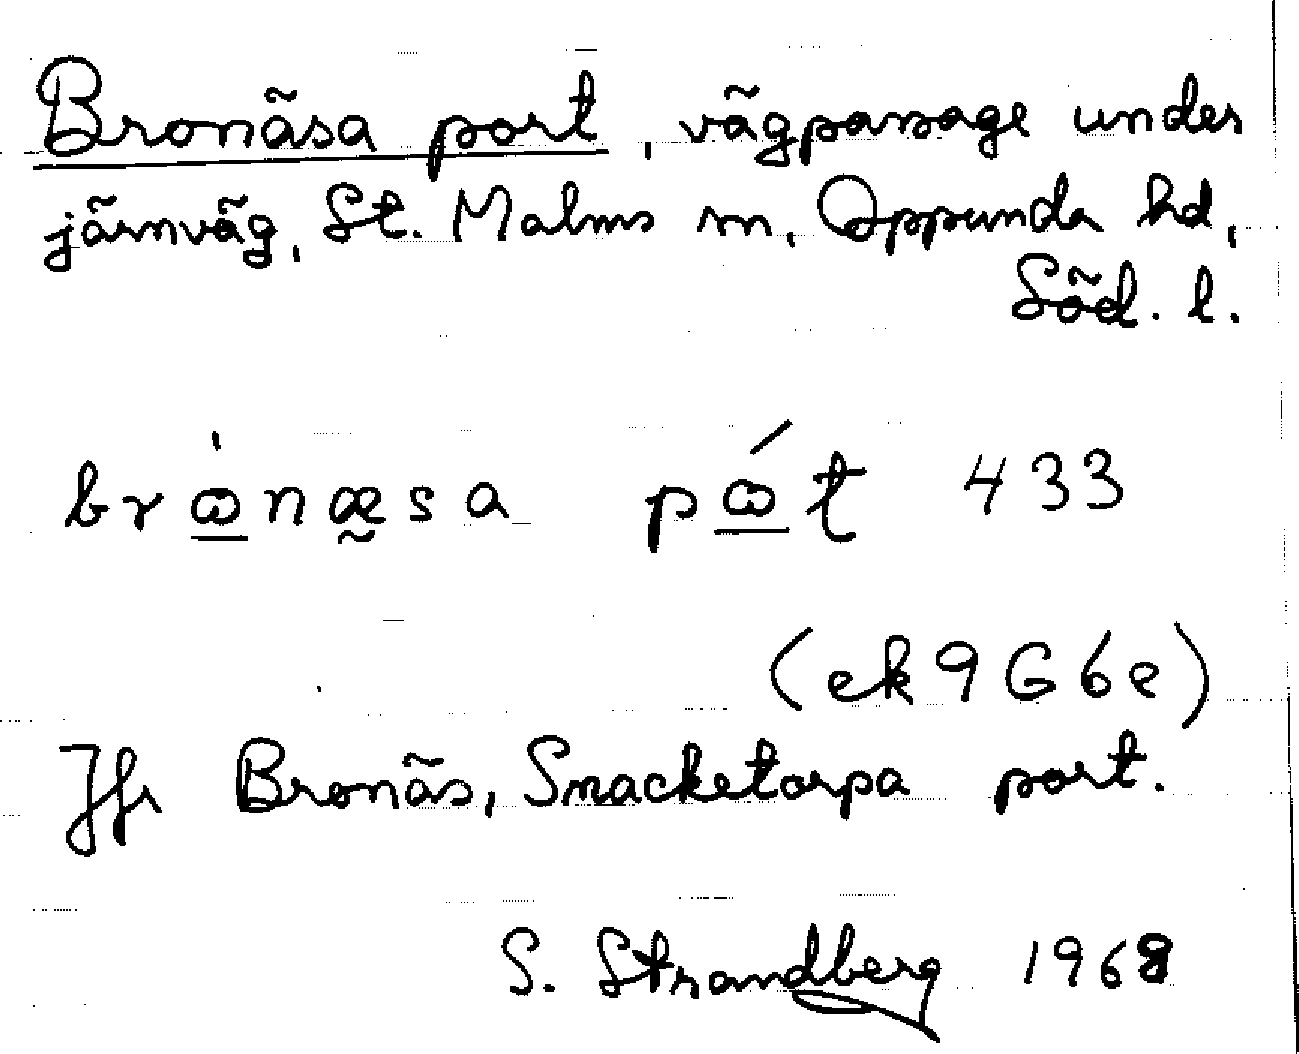 Bronäsa port, vägpassage under
järnväg, St. Malms sn, Oppunda hd,
Söd. l.
brὼ̲næ̰sa pώ̲t 433
(ek 9G6e)
Jfr Bronäs, Snacketorpa port.
S. Strandberg 1968